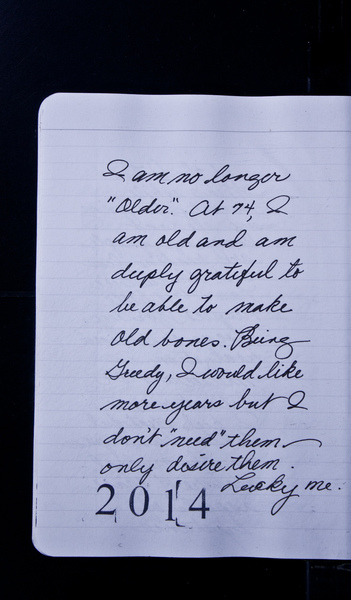 I am no longer
"Older". At 74, I
am old and am
deeply grateful to
be able to make
old bones. Being
Greedy, I would like
more years but I
don't "need" them
only desire them.
Lucky me.
2014